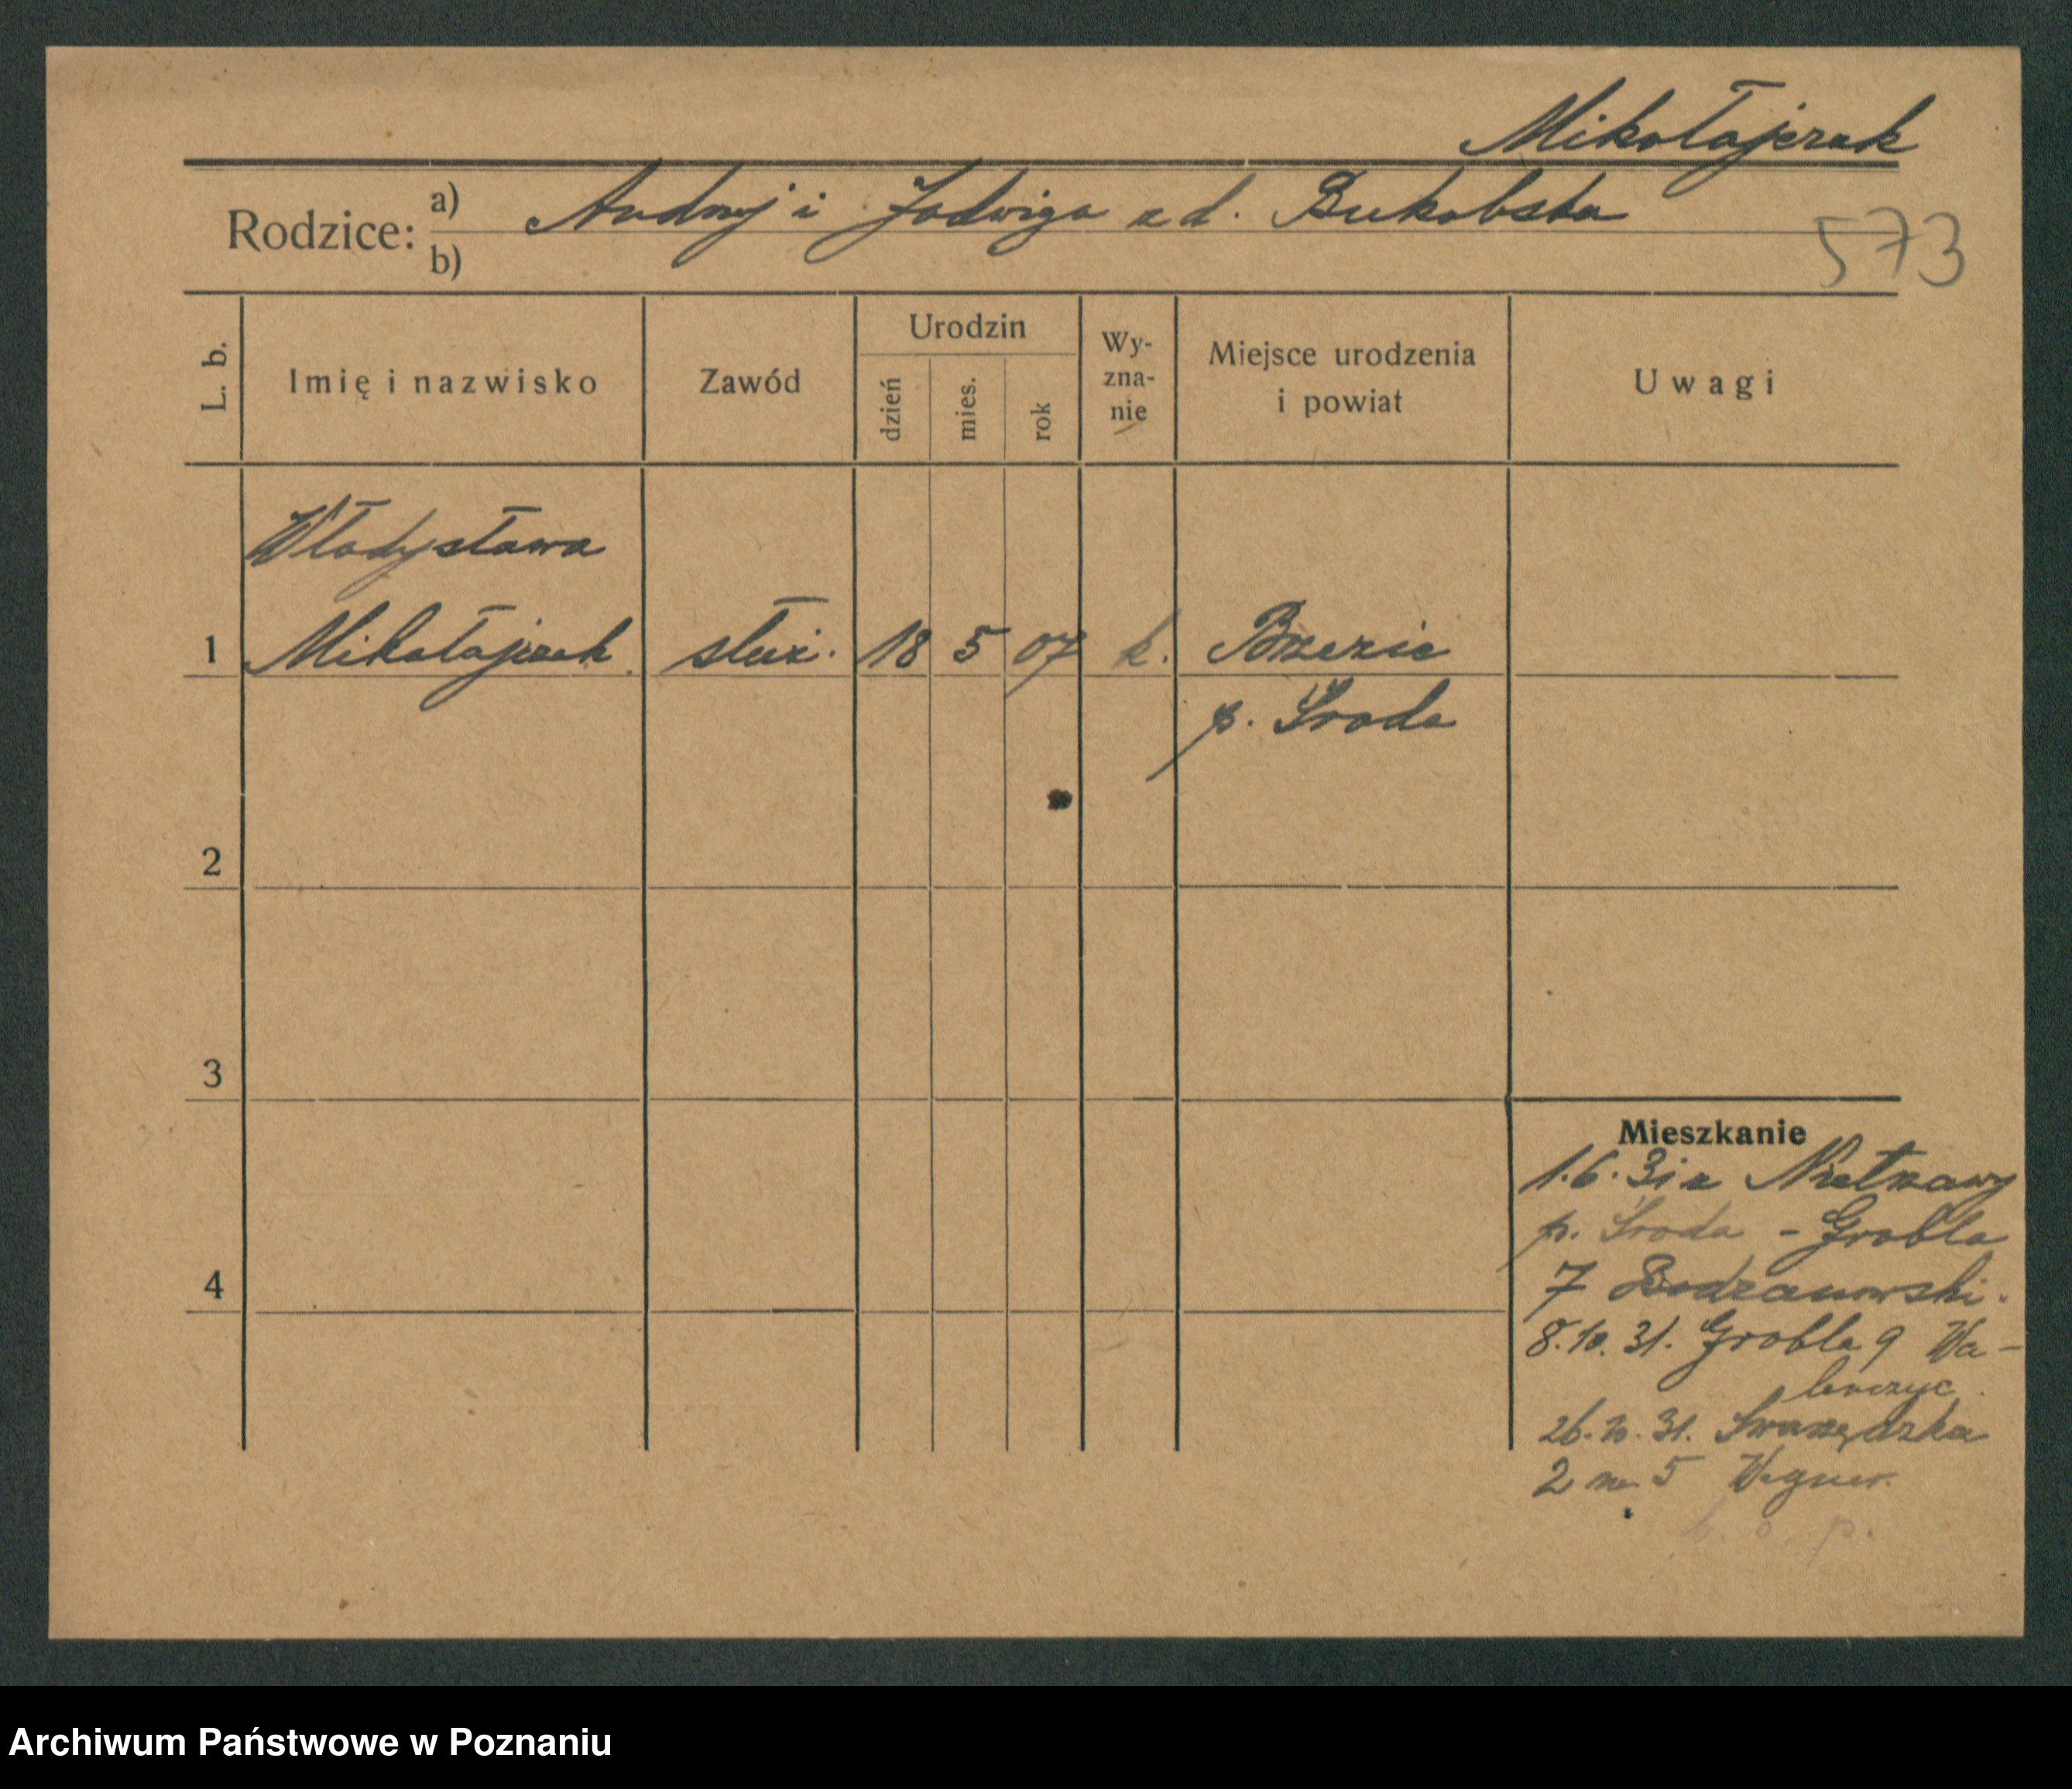 Mikołajczak
Rodzice: a) Andrzej i Jadwiga z d. Bukolska
b)
573
L. b.
Imię i nazwisko
Zawód
Urodzin
dzień
mies.
rok
Wy-
zna-
nie
Miejsce urodzenia
i powiat
Uwagi
Władysława
1 Mikołajczak służ. 18 5 07 k. Brzezie
p. Środa
2
3
Mieszkanie
1.6.31 z Nietrzanowy
p. Środa - Grobla
4
7 Bodzanowski.
8.10.31. Grobla 9 Wa-
lenczyc
26.10.31. Swarzędzka
2 m 5 Wegner.
b. o. p.
Archiwum Państwowe w Poznaniu